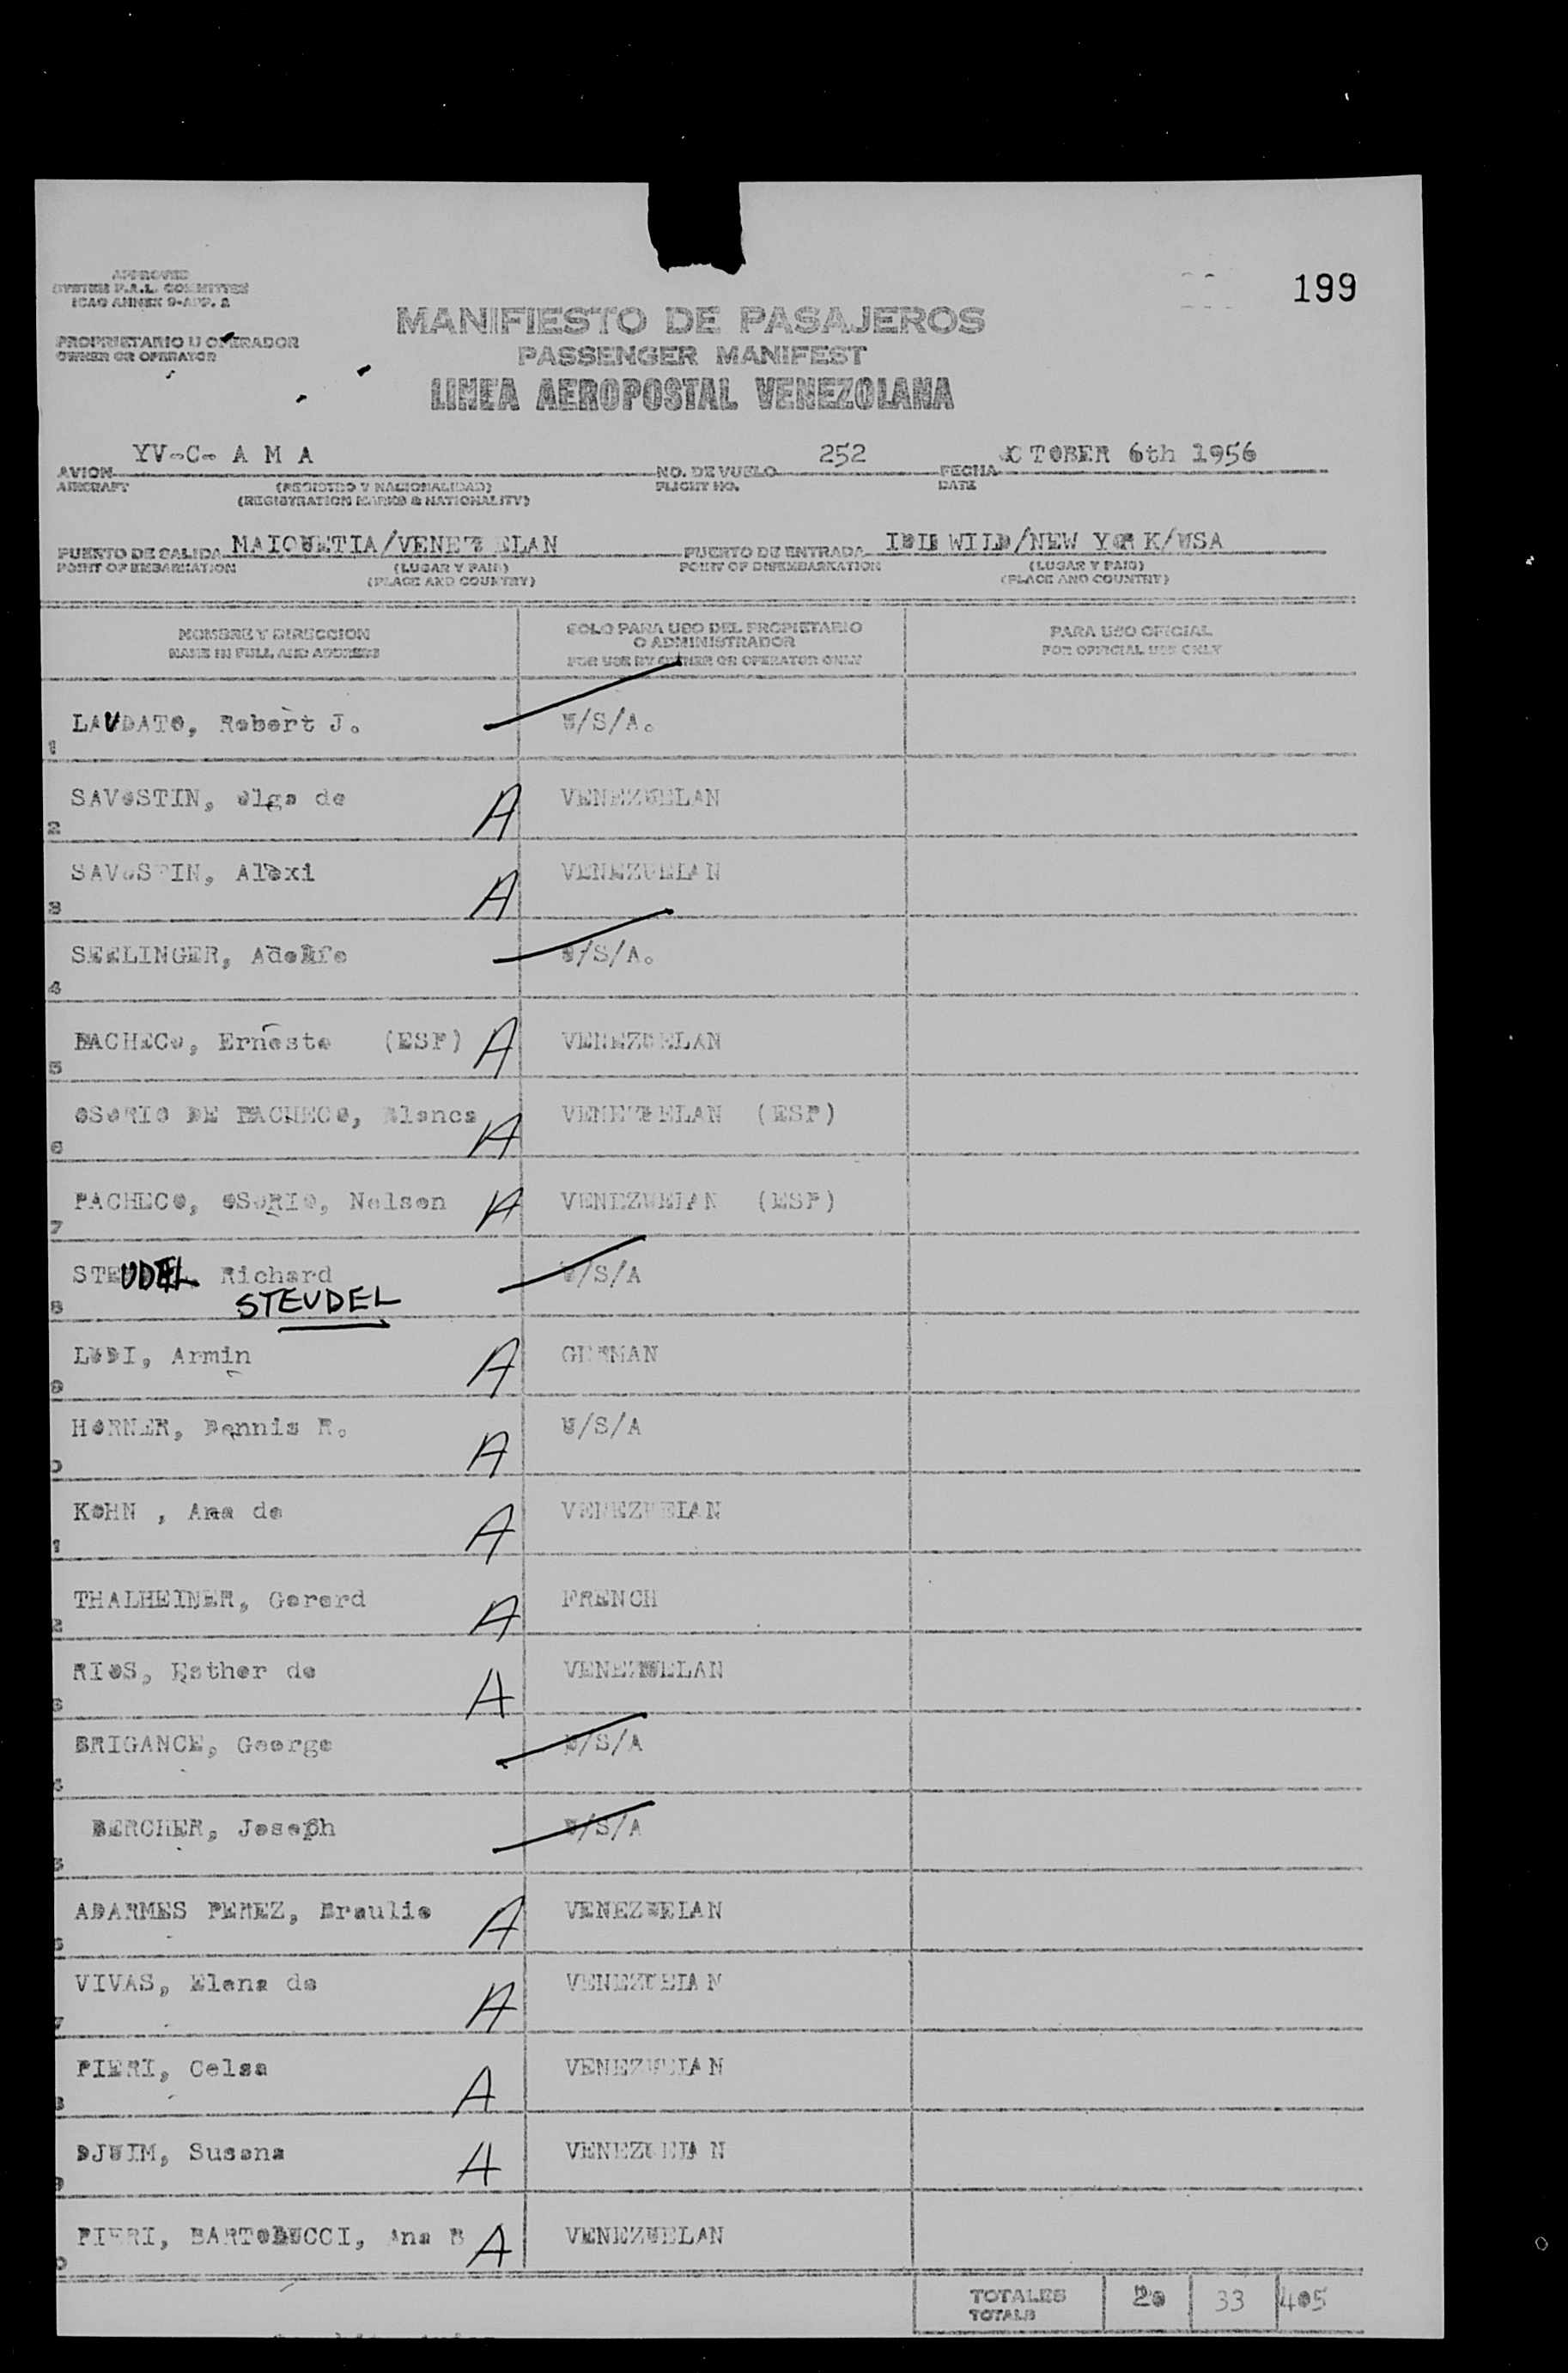 199
APPROVED
SYSTEM F.A.L. COMMITTEE
ICAO ANNEX 9-APP. 2
PROPRIETARIO U OPERADOR
OWNER OR OPERATOR
MANIFIESTO DE PASAJEROS
PASSENGER MANIFEST
LINEA AEROPOSTAL VENEZOLANA
AVION YV-C- A M A NO. DE VUELO 252 FECHA OCTOBER 6th 1956
AIRCRAFT (REGISTRO Y NACIONALIDAD) FLIGHT NO. DATE
(REGISTRATION MARKS & NATIONALITY)
PUERTO DE SALIDA MAIQUETIA/VENEZUELAN PUERTO DE ENTRADA IDLEWILD/NEW YORK/USA
POINT OF EMBARKATION (LUGAR Y PAIS) POINT OF DISEMBARKATION (LUGAR Y PAIS)
(PLACE AND COUNTRY) (PLACE AND COUNTRY)
NOMBRE Y DIRECCION SOLO PARA USO DEL PROPIETARIO PARA USO OFICIAL
O ADMINISTRADOR
NAME IN FULL AND ADDRESS FOR USE BY OWNER OR OPERATOR ONLY FOR OFFICIAL USE ONLY
1 LAUDATO, Robert J. U/S/A.
2 SAVOSTIN, Olga de A VENEZUELAN
3 SAVOSTIN, Alexi A VENEZUELAN
4 SEELINGER, Adolfo U/S/A.
5 PACHECO, Ernesto (ESP) A VENEZUELAN
6 OSORIO DE PACHECO, Blanca A VENEZUELAN (ESP)
7 PACHECO, OSORIO, Nelson A VENEZUELAN (ESP)
8 STEUDEL Richard U/S/A
STEUDEL
9 LUDI, Armin A GERMAN
0 HORNER, Dennis R. A U/S/A
1 KOHN , Ana de A VENEZUELAN
2 THALHEINER, Gerard A FRENCH
3 RIOS, Esther de A VENEZUELAN
4 BRIGANCE, George U/S/A
5 BERCHER, Joseph U/S/A
6 ADARMES PEREZ, Braulio A VENEZUELAN
7 VIVAS, Elena de A VENEZUELAN
8 PIERI, Celsa A VENEZUELAN
9 DJUIM, Susana A VENEZUELAN
0 PIERI, BARTOLUCCI, Ana B A VENEZUELAN
TOTALES 20 33 405
TOTALS